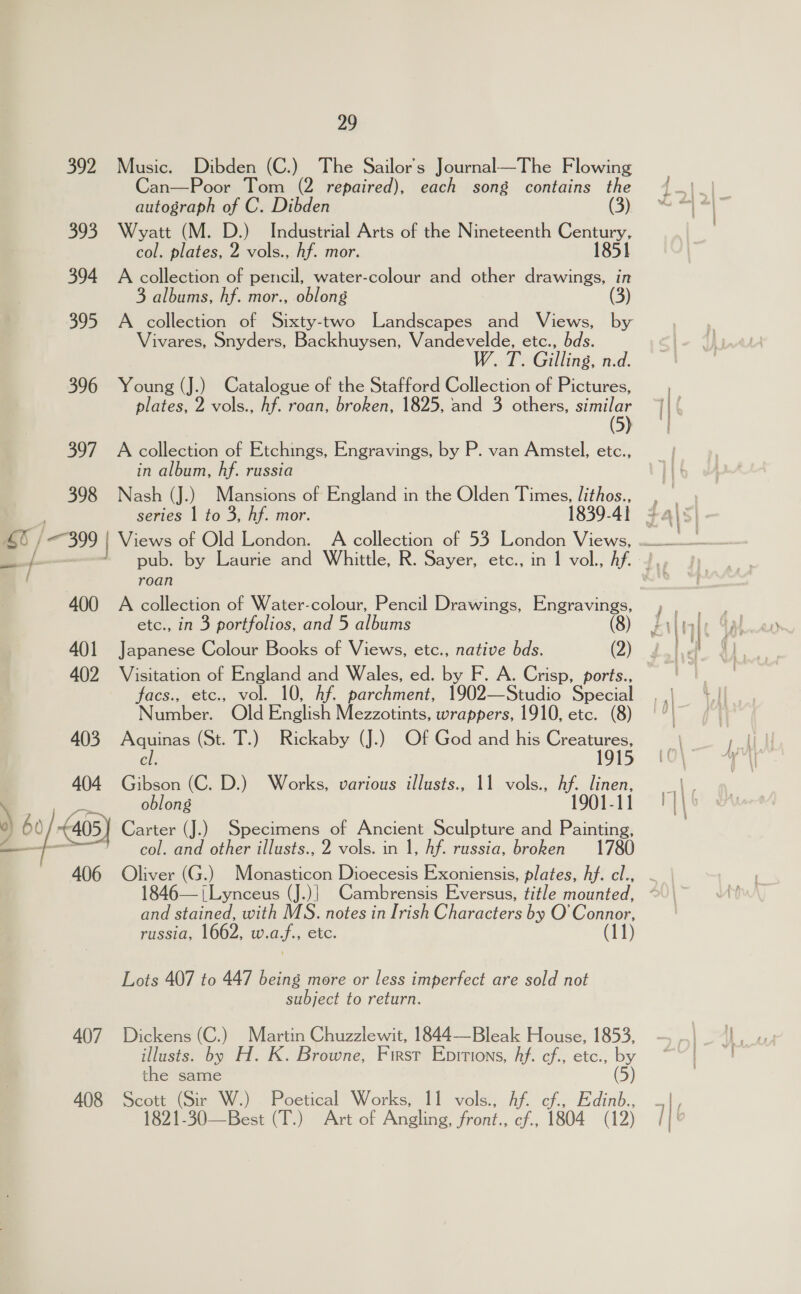 29
392 Music. Dibden (C.) The Sailor's Journal—The Flowing
Can—Poor Tom (2 repaired), each song contains the
autograph of C. Dibden (3)
393 Wyatt (M. D.) Industrial Arts of the Nineteenth Century,
col. plates, 2 vols., hf. mor. 1851
394 A collection of pencil, water-colour and other drawings, in
3 albums, hf. mor., oblong (3)
395 A collection of Sixty-two Landscapes and Views, by
Vivares, Snyders, Backhuysen, Vandevelde, etc., bds.
W. T. Gilling, n.d.
396 Young (J.) Catalogue of the Stafford Collection of Pictures,
plates, 2 vols., hf. roan, broken, 1825, and 3 others, similar
(5)
397 A collection of Etchings, Engravings, by P. van Amstel, etc.,
in album, hf. russia
398 Nash (J.) Mansions of England in the Olden Times, lithos.,
series 1 to 3, hf. mor. 1839-41
399 Views of Old London. A collection of 53 London Views,
pub. by Laurie and Whittle, R. Sayer, etc., in 1 vol., hf.
roan
400 A collection of Water-colour, Pencil Drawings, Engravings,
etc., in 3 portfolios, and 5 albums (8)
401 Japanese Colour Books of Views, etc., native bds. (2)
402 Visitation of England and Wales, ed. by F. A. Crisp, ports.,
facs., etc., vol. 10, hf. parchment, 1902—Studio Special
Number. Old English Mezzotints, wrappers, 1910, etc. (8)
403 Aquinas (St. T.) Rickaby (J.) Of God and his Creatures,
cl. 1915
404 Gibson (C. D.) Works, various illusts., 11 vols., hf. linen,
oblong 1901-11
60/ 405 Carter (J.) Specimens of Ancient Sculpture and Painting,
col. and other illusts., 2 vols. in 1, hf. russia, broken 1780
406 Oliver (G.) Monasticon Dioecesis Exoniensis, plates, hf. cl.,
1846—[Lynceus (J.)] Cambrensis Eversus, title mounted,
and stained, with MS. notes in Irish Characters by O'Connor,
russia, 1662, w.a.f., etc. (11)
Lots 407 to 447 being more or less imperfect are sold not
subject to return.
407 Dickens (C.) Martin Chuzzlewit, 1844—Bleak House, 1853,
illusts. by H. K. Browne, First Editions, hf. cf., etc., by
the same (5)
408 Scott (Sir W.) Poetical Works, 11 vols., hf. cf., Edinb.,
1821-30—Best (T.) Art of Angling, front., cf., 1804 (12)